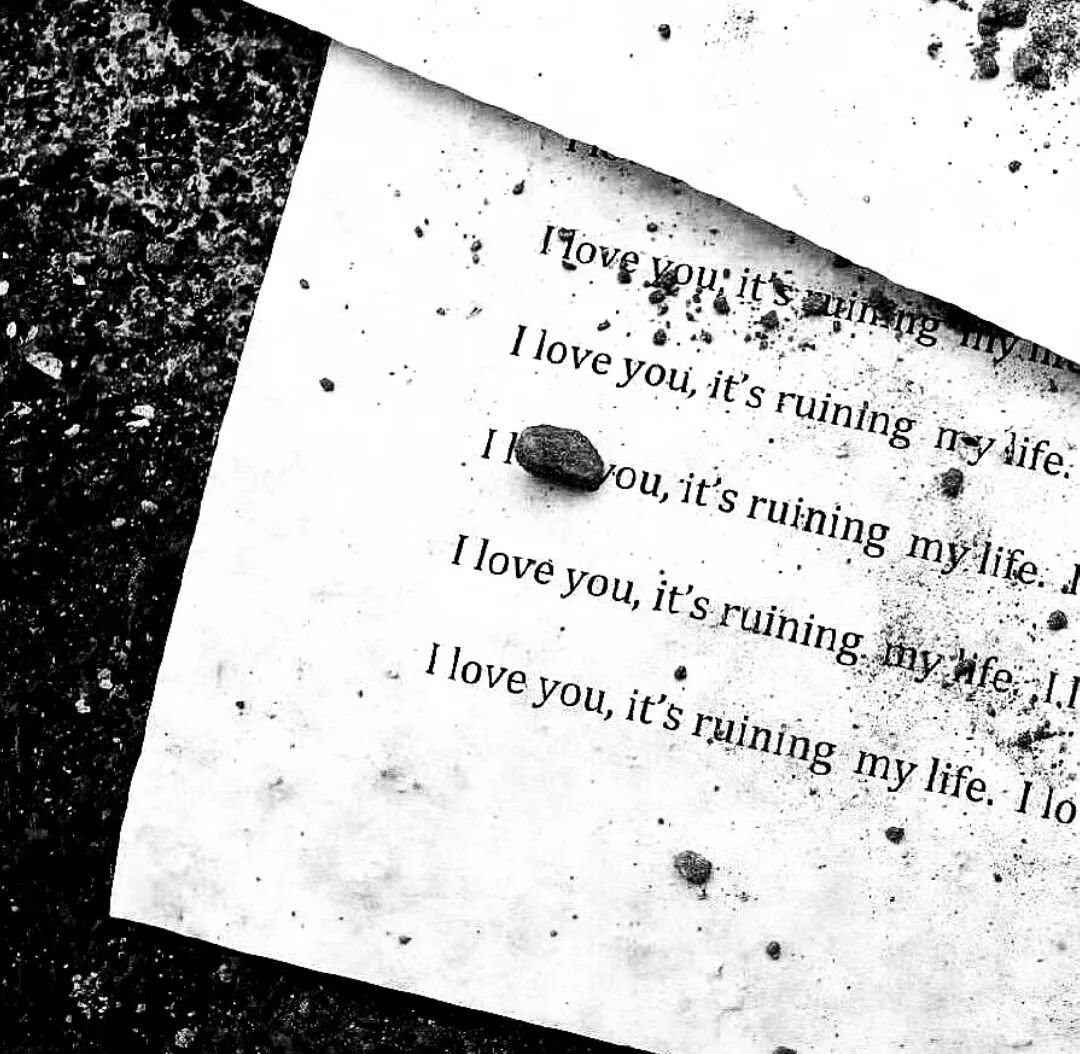 I love you, it's ruining my
I love you, it's ruining my life.
I you, it's ruining my life. I
I love you, it's ruining my life. I
I love you, it's ruining my life. I lo